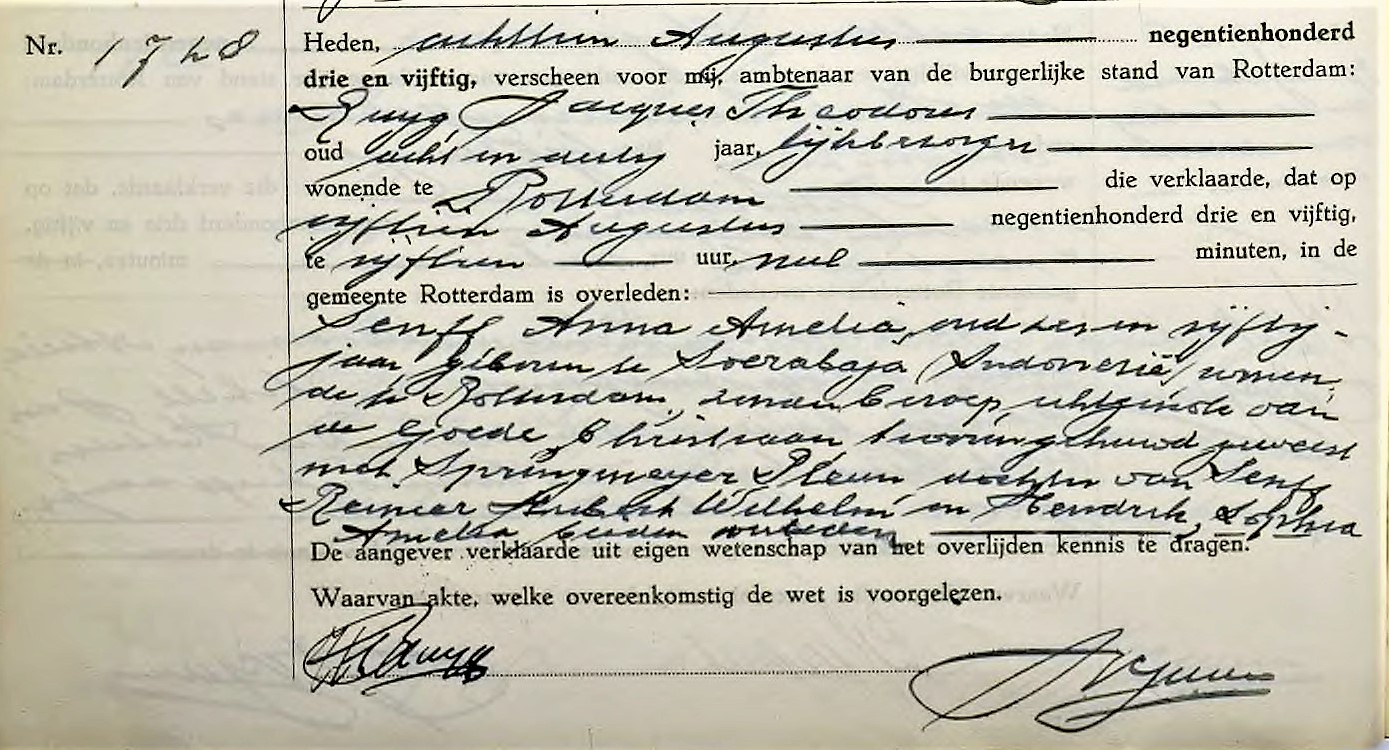 Nr. 1728
Heden, achttien Augustus negentienhonderd
drie en vijftig, verscheen voor mij, ambtenaar van de burgerlijke stand van Rotterdam:
Ruyg Jacques Theodorus
oud acht en dertig jaar, lijkbezorger
wonende te Rotterdam die verklaarde, dat op
vijftien Augustus negentienhonderd drie en vijftig,
te vijftien uur, nul minuten, in de
gemeente Rotterdam is overleden:
Senff Anna Amelia, oud zes en vijftig
jaar geboren te Soerabaja (Indonesië) wonen-
de te Rotterdam, zonder beroep, echtgenote van
de Goede, Christiaan tevoren gehuwd geweest
met Springmeyer Pleun dochter van Senff
Reinier Hubert Wilhelm en Hendrik, Sophia
Amelia beiden overleden
De aangever verklaarde uit eigen wetenschap van het overlijden kennis te dragen.
Waarvan akte, welke overeenkomstig de wet is voorgelezen.